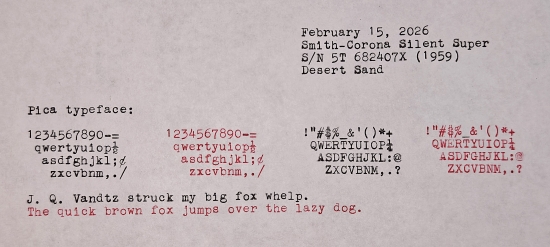 February 15, 2026
Smith-Corona Silent Super
S/N 5T 682407X (1959)
Desert Sand
Pica typeface:
1234567890-= 1234567890-= !"#$%_&'()*+ !"#$%_&'()*+
qwertyuiop½ qwertyuiop½ QWERTYUIOP¼ QWERTYUIOP¼
asdfghjkl;¢ asdfghjkl;¢ ASDFGHJKL:@ ASDFGHJKL:@
zxcvbnm,./ zxcvbnm,./ ZXCVBNM,.? ZXCVBNM,.?
J. Q. Vandtz struck my big fox whelp.
The quick brown fox jumps over the lazy dog.